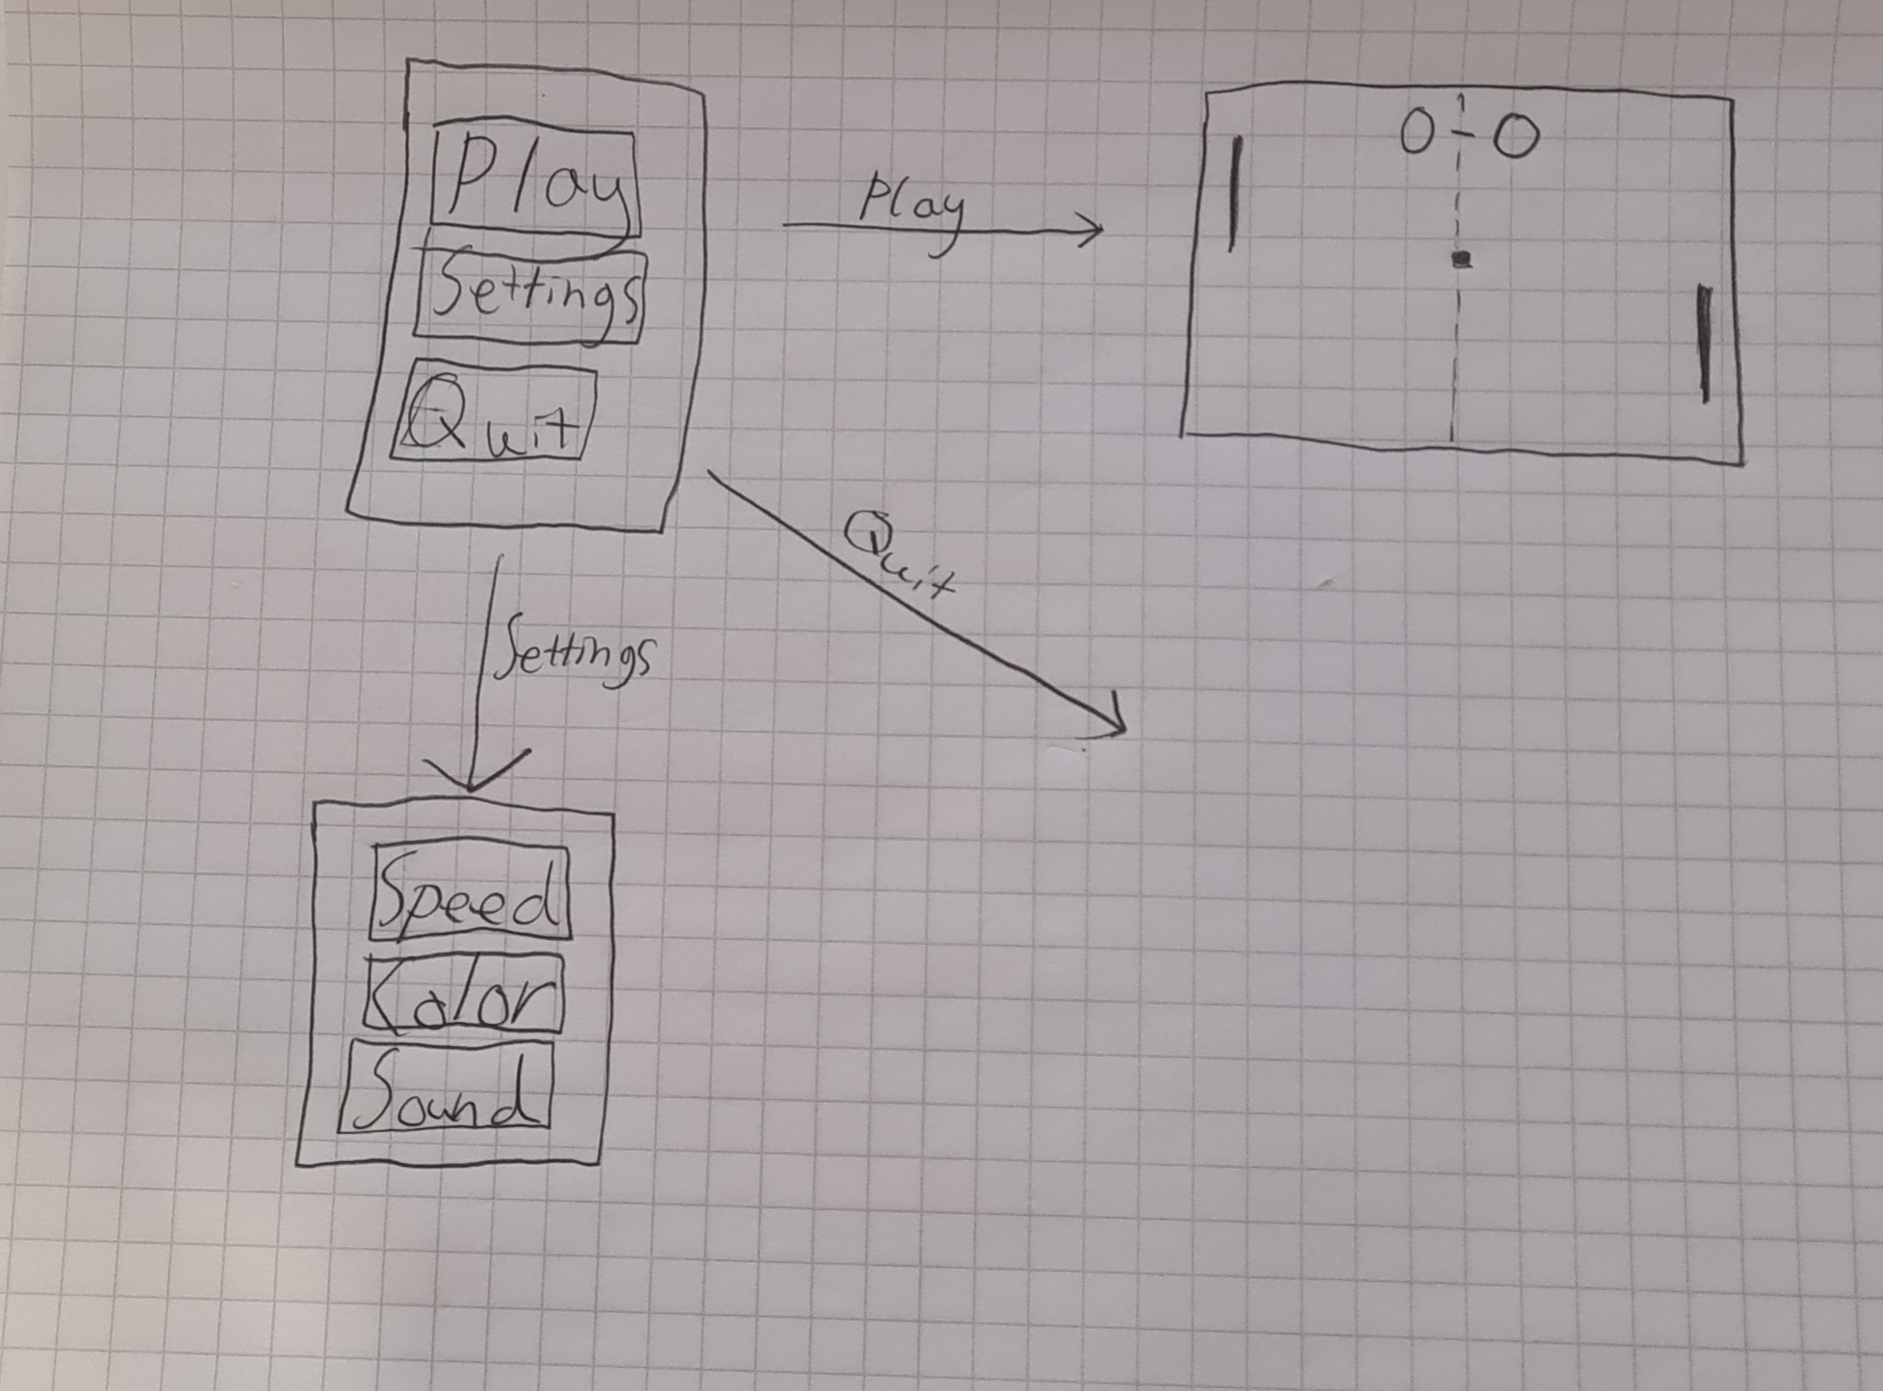 Play
Settings
Quit
Play
0-0
Quit
Settings
Speed
Kolor
Sound